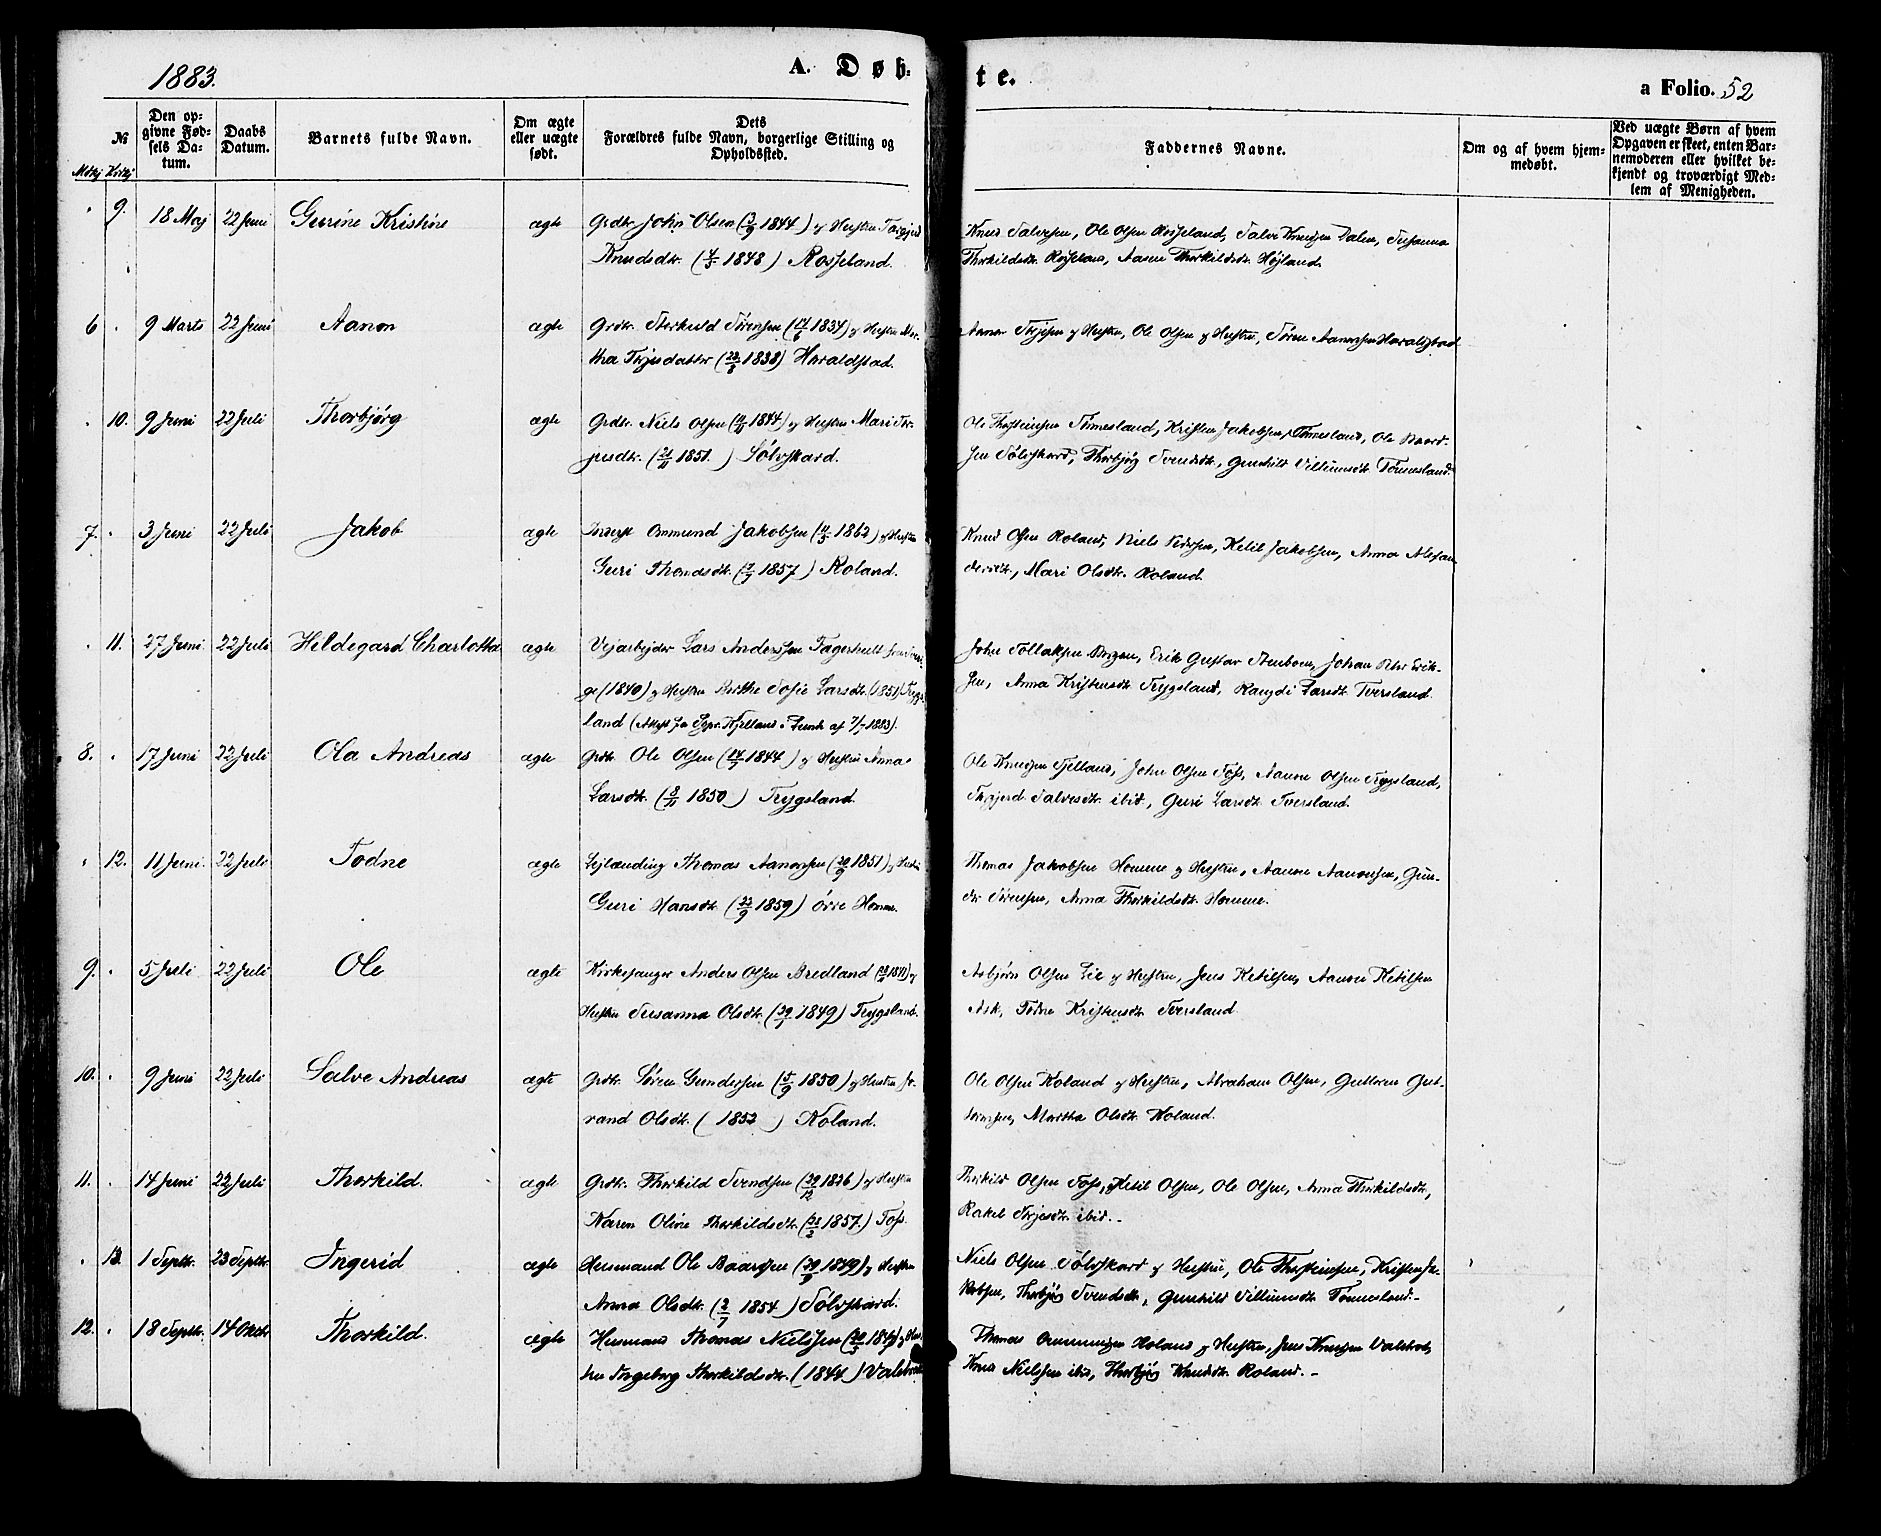 1883.
A. Døb-
te.
a Folio. 52
№
Mdkj Kvkj
Den op-
givne Fød-
sels Da-
tum.
Daabs
Datum.
Barnets fulde Navn.
Om ægte
eller uægte
født.
Dets
Forældres fulde Navn, borgerlige Stilling og
Opholdssted.
Faddernes Navne.
Om og af hvem hjem-
medøbt.
Ved uægte Børn af hvem
Opgaven er skeet, enten Bar-
nemoderen eller hvilket be-
kjendt og troværdigt Med-
lem af Menigheden.
9. 18 Maj 22 Juni Gurine Kristine ægte Grdbr. John Olsen 1844) og Hustru
Knudsdtr. 1848) Rosseland.
Knud Salvesen, Ole Olsen Rosseland, Salve Knudsen Dalen, Susanna
Thorkildsdtr. Rosseland, Aasne Thorkildsdtr. Højland.
6 9 Marts 22 Juni Aanon ægte Grdbr. Sørensen 1834) og Hustru Mar-
tha Terjesdatter 1838) Haraldstad.
Aanon Terjesen og Hustru, Ole Olsen og Hustru, Søren Aanonsen Haraldstad
10. 9 Juni 22 Juli Thorbjørg ægte Grdbr. Niels Olsen 1844) og Hustru Mari Ter-
jesdtr. 1851.) Sølvskard.
Ole Thorsteinsen Tønnesland, Kristen Jakobsen Tønnesland, Ole Baard-
sen Sølvskard, Thorbjørg Svendsdtr., Gunhild Villumsdtr. Tønnesland.
7. 3 Juni 22 Juli Jakob ægte Ommund Jakobsen 1862) og Hustru
Guri Thomasdtr. 1857) Roland.
Knud Olsen Roland, Niels Pedersen, Ketil Jakobsen, Anna Alexan-
dersdtr., Mari Olsdtr. Roland.
11. 27 Juni 22 Juli Hildegard Charlotha ægte Vejarbejder Lars Anderssen Fagerhult
(1840) og Hustru Berthe Sofie Larsdtr. (1851) Trygs-
land (Attest fra Sgpr. Kjelland i Lunde af 7/7 1883).
John Tollaksen Erik Gustav Stenbom, Johan Peter Erik-
sen, Anna Kristensdtr. Trygsland, Randi Larsdtr. Tversland.
8. 17 Juni 22 Juli Ola Andreas ægte Grdbr. Ole Olsen 1844) og Hustru Anna
Larsdtr. 1850) Trygsland.
Ole Knudsen Fjelland, John Olsen Foss, Aanon Olsen Trygsland,
Salvesdtr. ibid, Guri Larsdtr. Tversland.
12. 11 Juni 22 Juli Todne ægte Lejlænding Thomas Aanonsen 1851) og Hustru
Guri Hansdtr. 1859) øvre Homme.
Thomas Jakobsen Homme og Hustru, Aanon Aanonsen, Gun-
der Sørensen, Anna Thorkildsdtr. Homme.
9. 5 Juli 22 Juli Ole ægte Kirkesanger Anders Olsen Bredland og
Hustru Susanna Olsdtr. 1849) Trygsland.
Asbjørn Olsen Lie og Hustru, Jens Ketilsen, Aanon Ketilsen
Ask, Todne Kristensdtr. Tversland
10. 9 Juni 22 Juli Salve Andreas ægte Grdbr. Søren Gundersen (5/9 1850) og Hustru Jo-
rand Olsdtr. ( 1852 ) Roland.
Ole Olsen Roland og Hustru, Abraham Olsen, Guttorm Gut-
tormsen, Martha Olsdtr. Roland.
11. 14 Juni 22 Juli Thorkild. ægte Grdbr. Thorkild Svendsen (29/12 1836) og Hustru
Karen Oline Thorkildsdtr. 1857.) Foss.
Thorkild Olsen Foss, Ketil Olsen, Ole Olsen, Anna Thorkildsdtr.,
Rakel Terjesdtr. ibid. -
13. 1 Septbr. 23 Septbr Ingerid ægte Husmand Ole Baardsen 1849) og Hustru
Anna Olsdtr. 1854) Sølvskard.
Niels Olsen Sølvskard og Hustru, Ole Thorsteinsen, Kristen Ja-
kobsen, Thorbjørg Svendsdtr., Gunhild Villumsdtr. Tønnesland. -
12. 18 Septbr. 14 Oktbr Thorkild. ægte Husmand Thomas Nielssen og Hus-
tru Ingeborg Thorkildsdtr. (1844)
Thomas Ommundsen Roland og Hustru, Jens Knudsen
Knud Nielssen ibid, Thorbjørg Knudsdtr. Roland. -